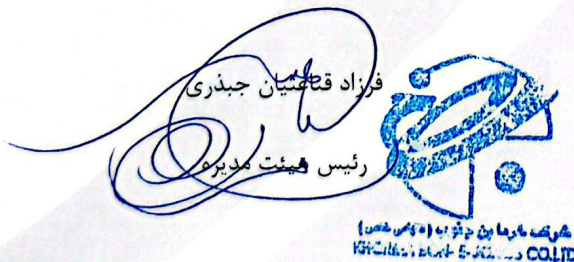 فرزاد قناعتیان جبذری
رئیس هیئت مدیره
شرکت
CO.LTD